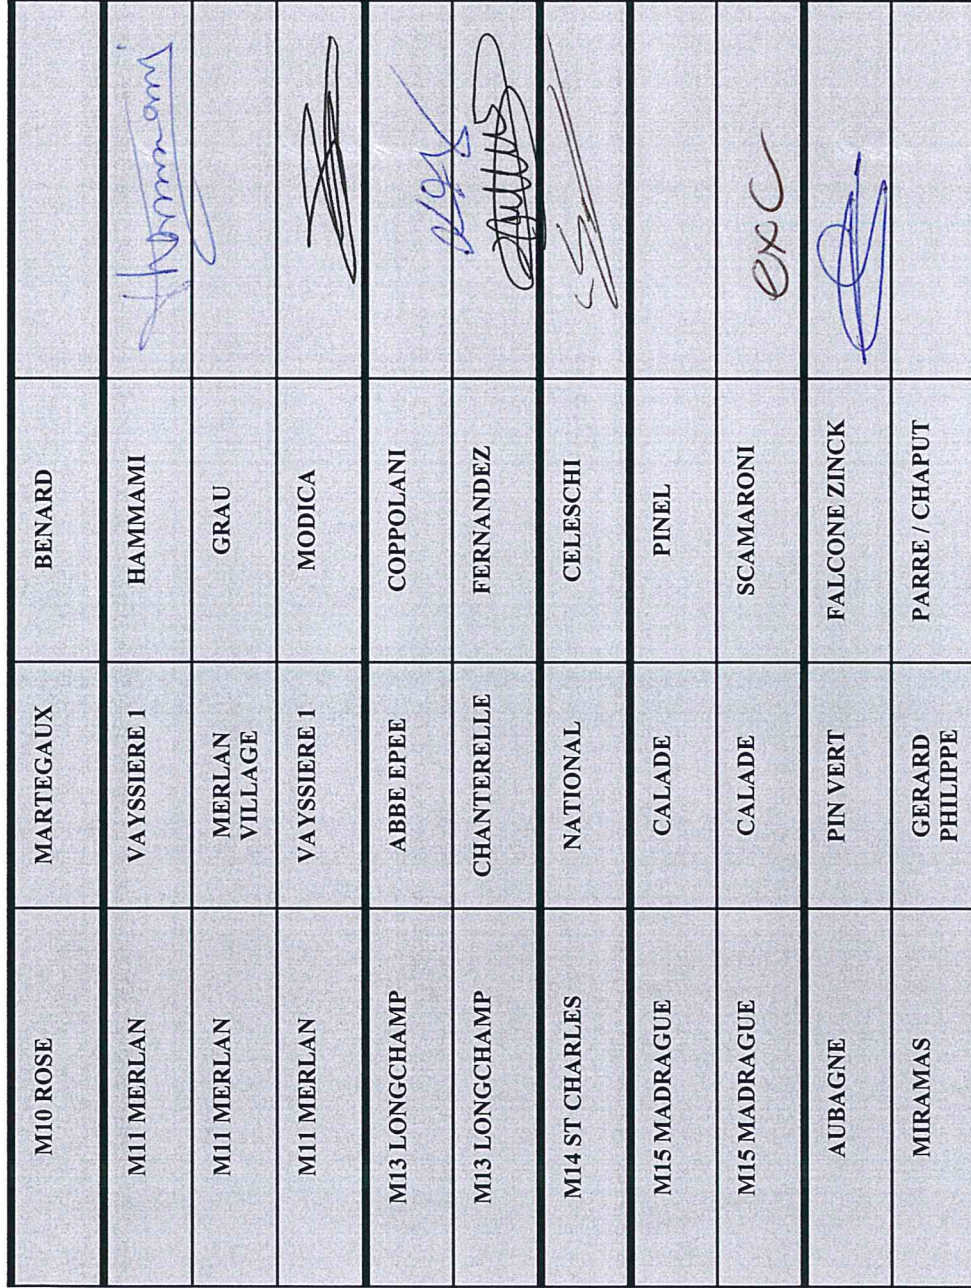 M10 ROSE MARTEGAUX BENARD
M11 MERLAN VAYSSIERE 1 HAMMAMI Hammami
M11 MERLAN MERLAN
VILLAGE GRAU
M11 MERLAN VAYSSIERE 1 MODICA
M13 LONGCHAMP ABBE EPEE COPPOLANI
M13 LONGCHAMP CHANTERELLE FERNANDEZ
M14 ST CHARLES NATIONAL CELESCHI
M15 MADRAGUE CALADE PINEL
M15 MADRAGUE CALADE SCAMARONI exc
AUBAGNE PIN VERT FALCONE ZINCK
MIRAMAS GERARD
PHILIPPE PARRE / CHAPUT